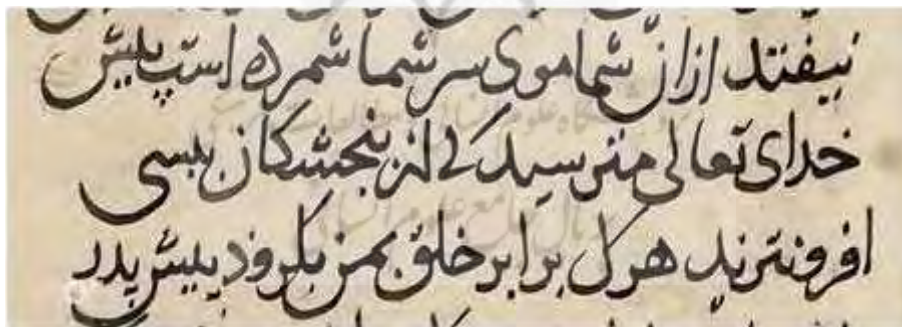 نیفتد ازان شما موی سر شما شمرده است پیش
خدای تعالی مترسید کی از بنجشکان بسی
افزونترید هرک برابر خلق بمن بکرود پیش پدر